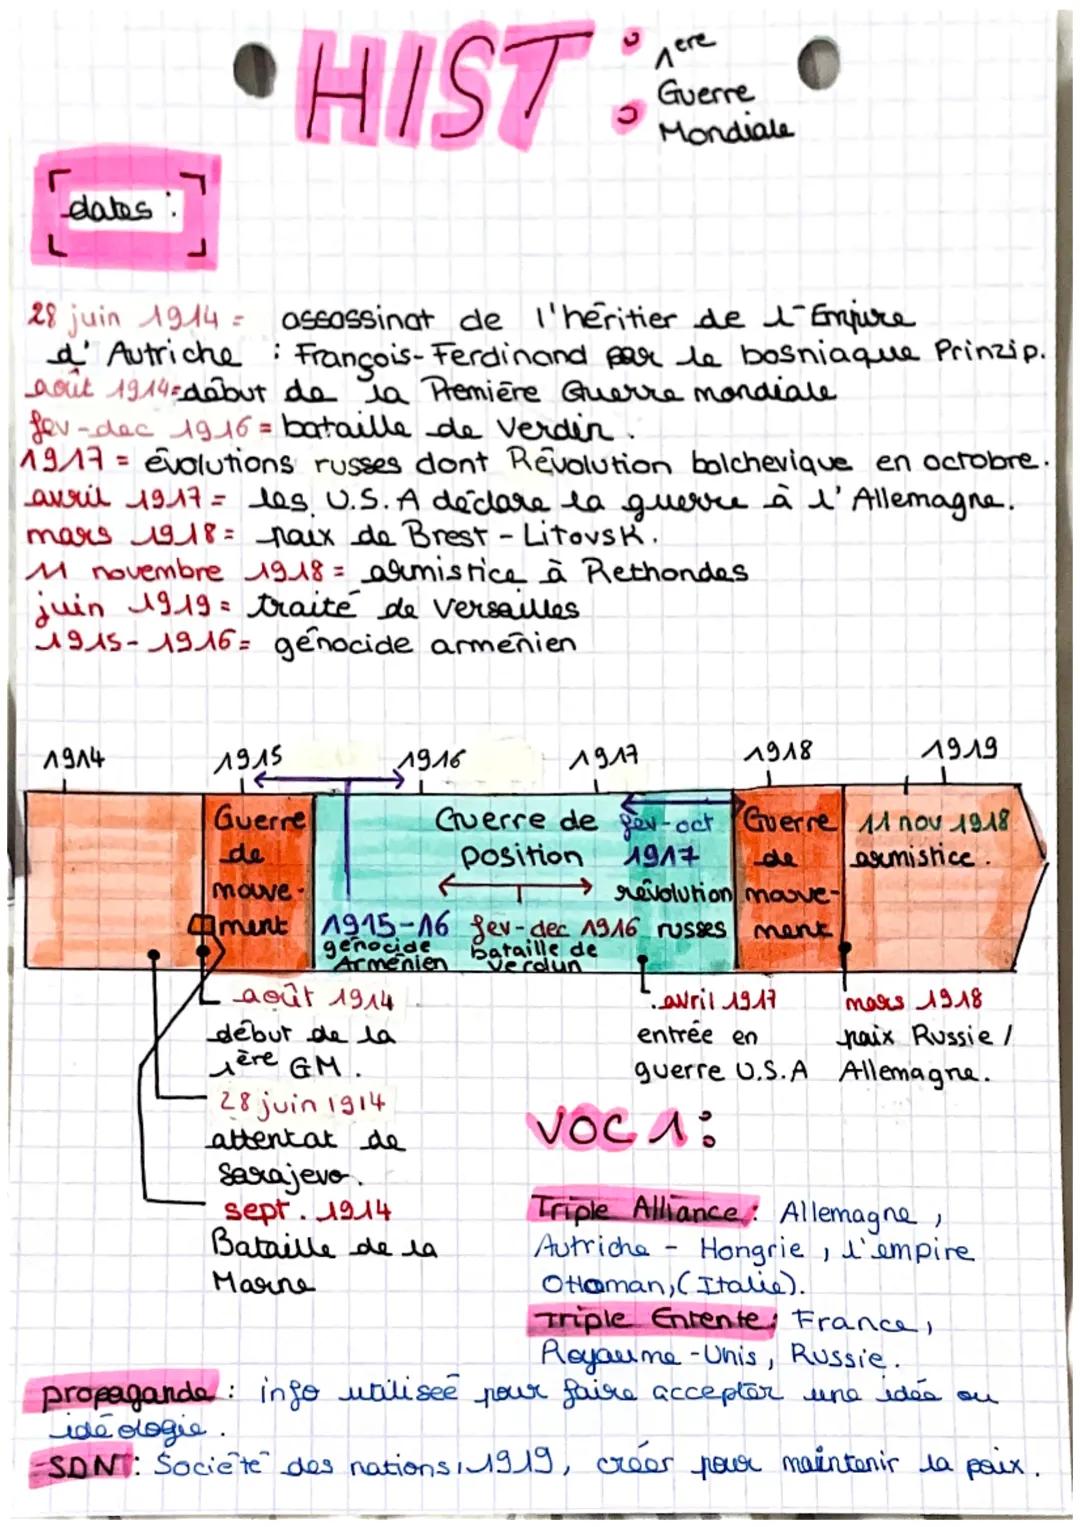 HIST :
1ere
Guerre
Mondiale
dates :
28 juin 1914 = assassinat de l'héritier de l'Empire
d'Autriche : François-Ferdinand par le bosniaque Prinzip.
août 1914 = début de la Première Guerre mondiale
fev-dec 1916 = bataille de Verdin.
1917 = évolutions russes dont Révolution bolchevique en octobre.
avril 1917 = les U.S.A déclare la guerre à l'Allemagne.
mars 1918 = paix de Brest-Litovsk.
11 novembre 1918 = armistice à Rethondes
juin 1919 = traité de Versailles
1915-1916 = génocide arménien
1914 1915 1916 1917 1918 1919
Guerre
de
mouve-
ment
Guerre de
position
1915-16
génocide
Arménien
fev-dec 1916
bataille de
Verdun
fev-oct
1917
révolution
russes
Guerre
de
mouve-
ment
11 nov 1918
armistice.
août 1914
début de la
1ère GM.
28 juin 1914
attentat de
Sarajevo.
sept. 1914
Bataille de la
Marne
avril 1917
entrée en
guerre U.S.A
mars 1918
paix Russie /
Allemagne.
VOC 1 :
Triple Alliance : Allemagne,
Autriche - Hongrie, l'empire
Ottoman, (Italie).
Triple Entente : France,
Royaume-Unis, Russie.
propagande : info utilisée pour faire accepter une idée ou
idéologie.
-SDN : Société des nations, 1919, créer pour maintenir la paix.